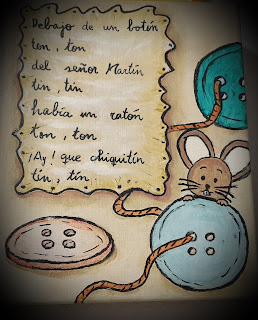 Debajo de un botín
ton, ton
del señor Martín
tin, tin
había un ratón
ton, ton
¡Ay! que chiquitín
tín, tín.